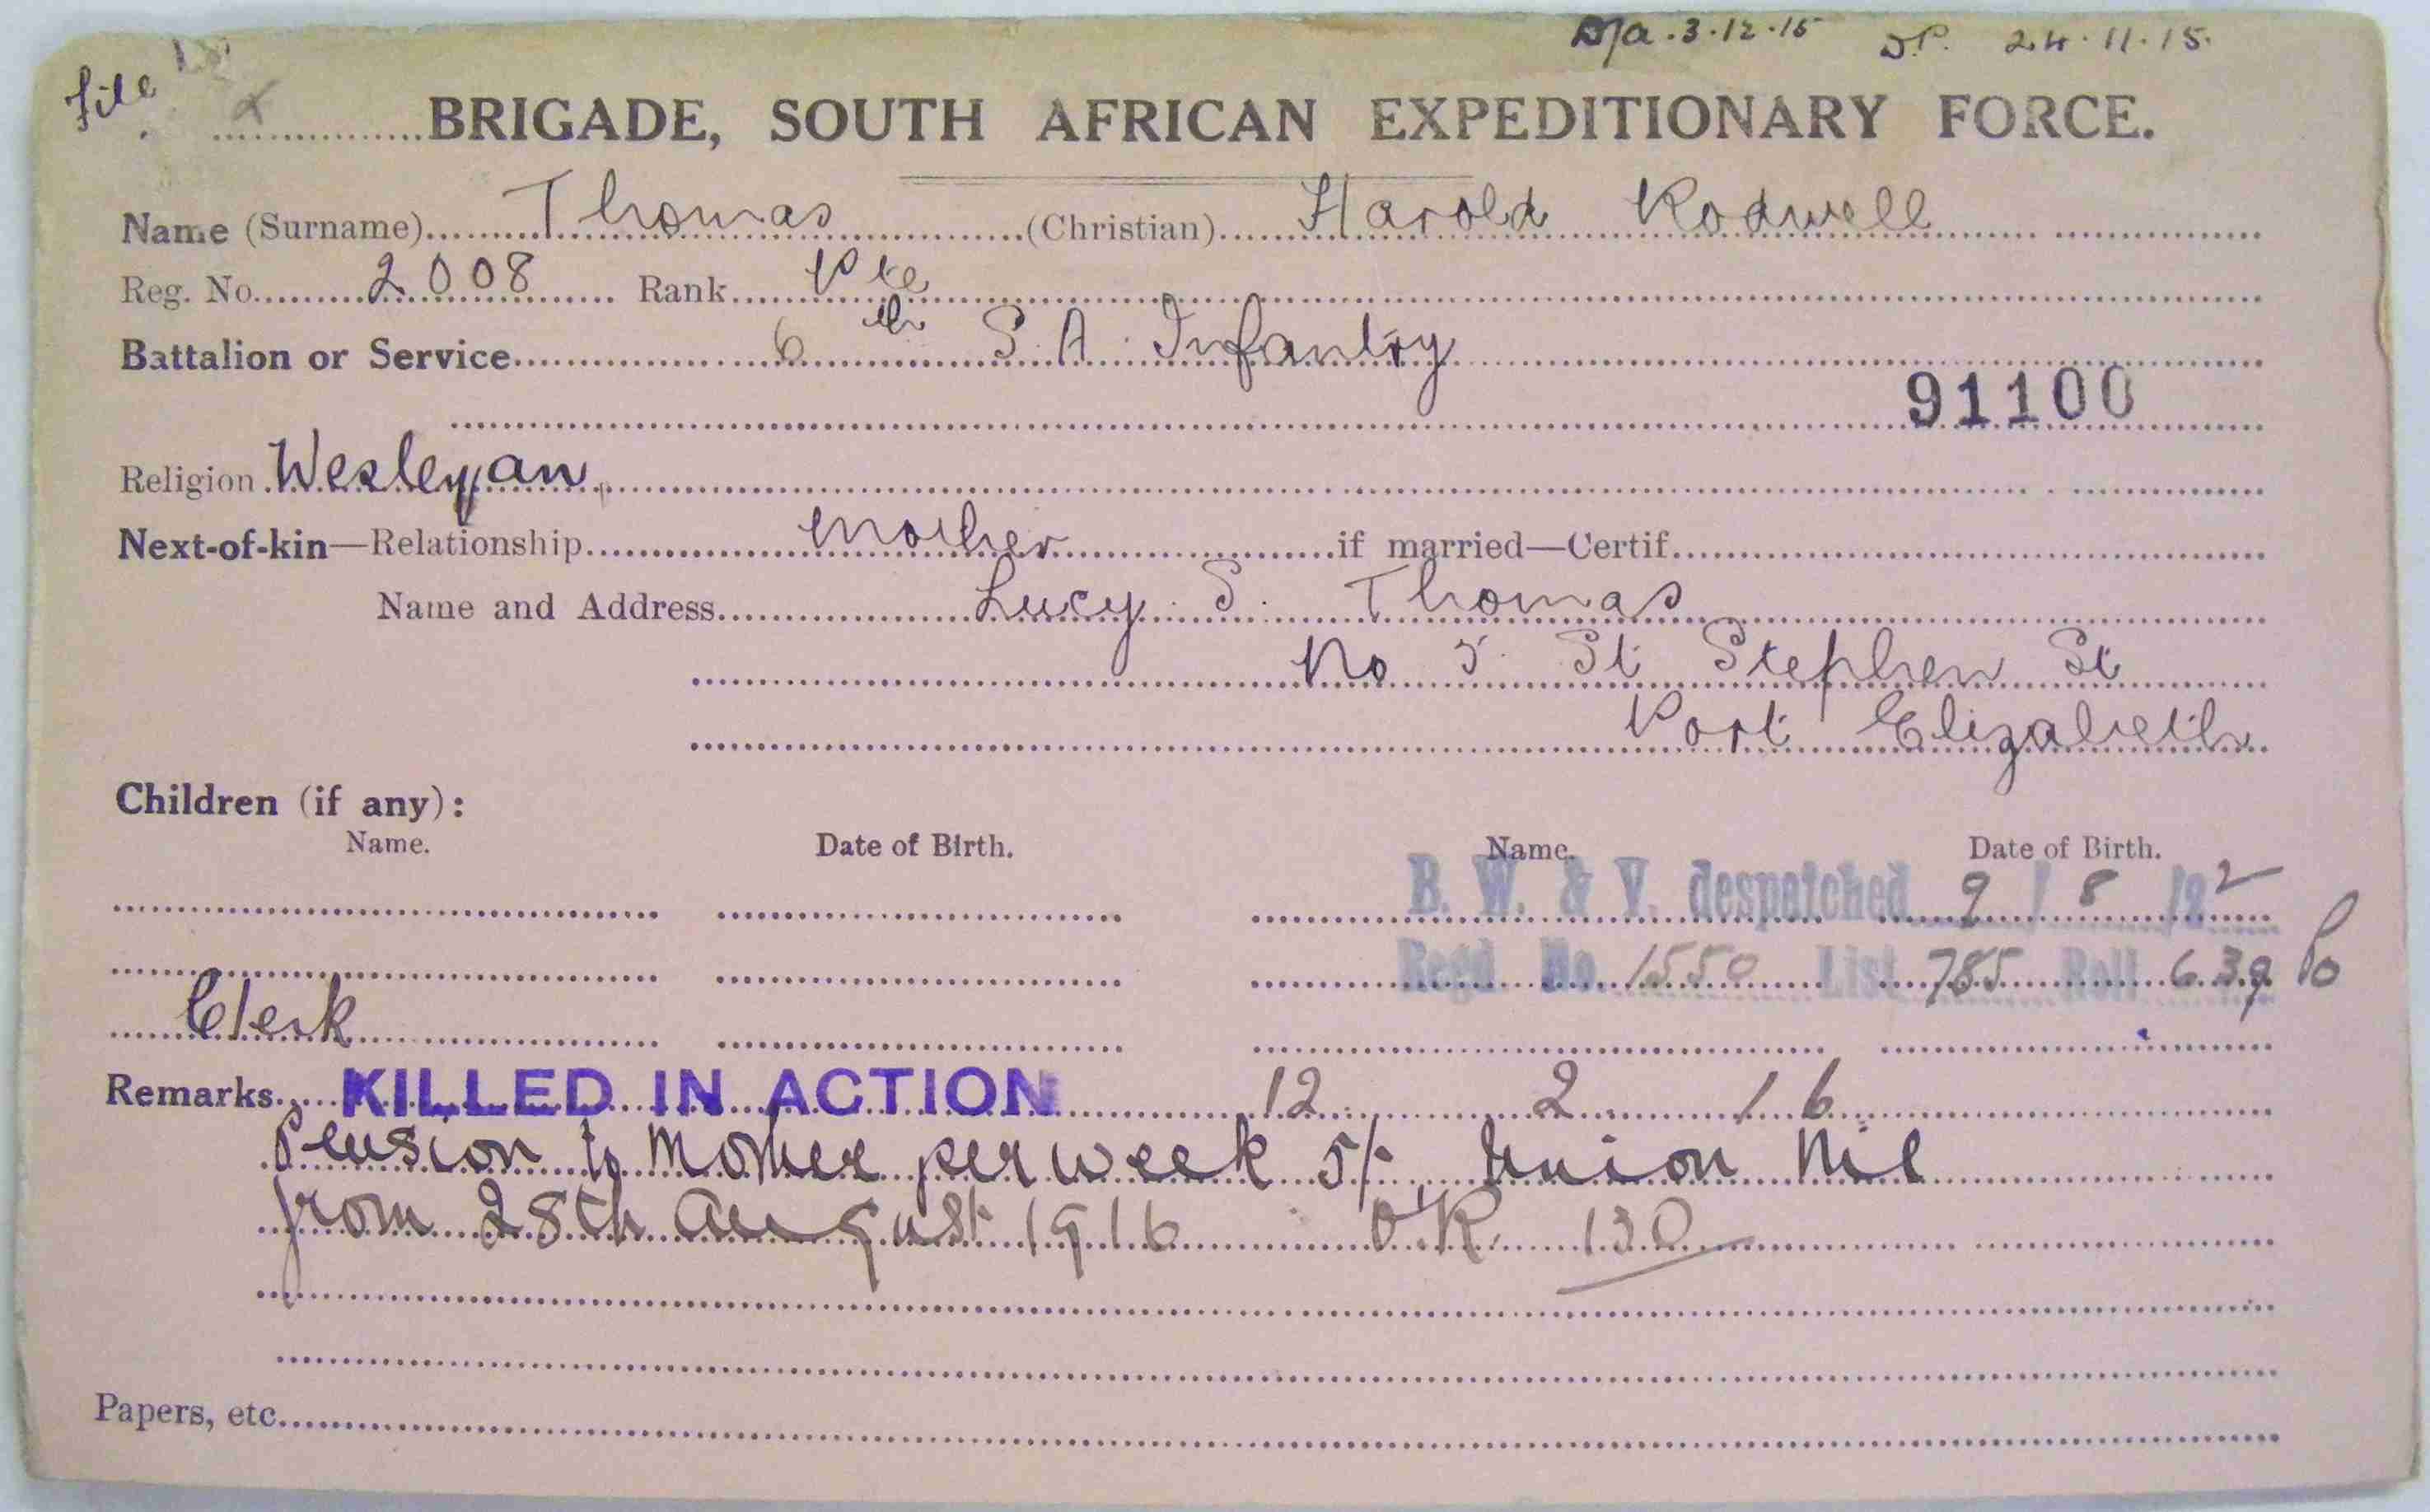 D/a . 3 . 12 . 15 D.P. 24 . 11 . 15.
file
BRIGADE, SOUTH AFRICAN EXPEDITIONARY FORCE.
Name (Surname) Thomas (Christian) Harold Rodwell
Reg. No. 2008 Rank Pte
Battalion or Service 6th S. A. Infantry
91100
Religion Wesleyan
Next-of-kin—Relationship Mother if married—Certif.
Name and Address Lucy S. Thomas
No 5. St Stephen St
Port Elizabeth
Children (if any):
Name. Date of Birth. Name. Date of Birth.
B. W. & V. despatched 9 / 8 /22
Regd No. 1550 List 785 Roll 639
Clerk
Remarks KILLED IN ACTION 12 2 16
Pension to Mother per week 5/- Union Nil
from 28th August 1916 130
Papers, etc.